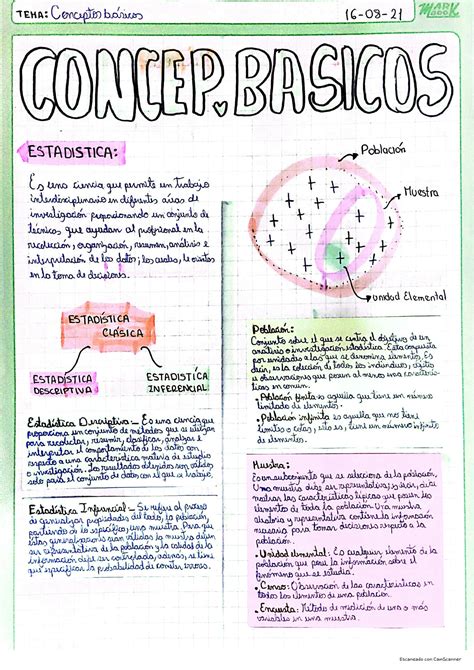 TEMA: Conceptos básicos
16-09-21
MARK BOOK
CONCEP. BASICOS
ESTADISTICA:
Es una ciencia que permite un trabajo
interdisciplinario en diferentes áreas de
investigación proporcionando un conjunto de
técnicas que ayudan al profesional en la
recolección, organización, resumen, análisis e
interpretación de los datos; los cuales, le
en la toma de decisiones.
Población
Muestra
Unidad Elemental
ESTADÍSTICA
CLÁSICA
ESTADÍSTICA
DESCRIPTIVA
ESTADISTICA
INFERENCIAL
Estadística Descriptiva - Es una ciencia que
proporciona un conjunto de métodos que se utilizan
para recolectar, resumir, clasificar, analizar e
interpretar el comportamiento de los datos con
respecto a una característica materia de estudio
o investigación. Los resultados obtenidos son válidos
solo para el conjunto de datos con el que se trabaja.
Estadística Inferencial - Se refiere al proceso
de generalizar propiedades del todo, la población,
partiendo de lo específico, una muestra. Para que
estas generalizaciones sean válidas la muestra deben
ser representativa de la población y la calidad de la
información debe ser controlada, además, se tiene
que especificar la probabilidad de cometer errores.
Población:
Conjunto sobre el que se centra el objetivo de un
análisis o investigación estadística. Esta compuesta
por unidades a las que se denomina elemento. Es
decir, es la colección de todos los individuos, objetos
u observaciones que poseen al menos una característica
en común.
• Población finita es aquella que tiene un número
limitado de elementos.
• Población infinita es aquella que nos tiene
límites o cotas, esto es, tiene un número infinito
de elementos.
Muestra:
Es un subconjunto que se selecciona de la población.
Una muestra debe ser representativa, es decir, debe
mostrar las características típicas que poseen los
elementos de toda la población. Una muestra
aleatoria y representativa contiene la información
necesaria para tomar decisiones respecto a la
población.
• Unidad elemental: Es cualquier elemento de la
población que posee la información sobre el
fenómeno que se estudia.
• Censo: Observación de las características en
todos los elementos de una población.
• Encuesta: Método de medición de una o más
variables en una muestra.
Escaneado con CamScanner